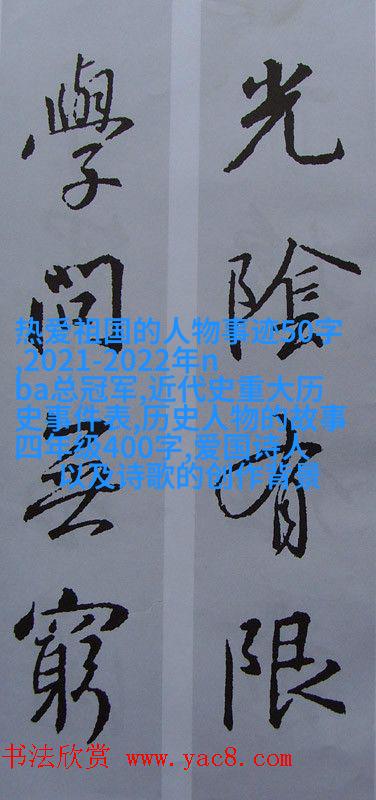 光陰有限
學問無窮
热爱祖国的人物事迹50字
,2021-2022年n
ba总冠军,近代史重大历
史事件表,历史人物的故事
四年级400字,爱国诗人
以及诗歌的创作背景
书法欣赏 www.yac8.com